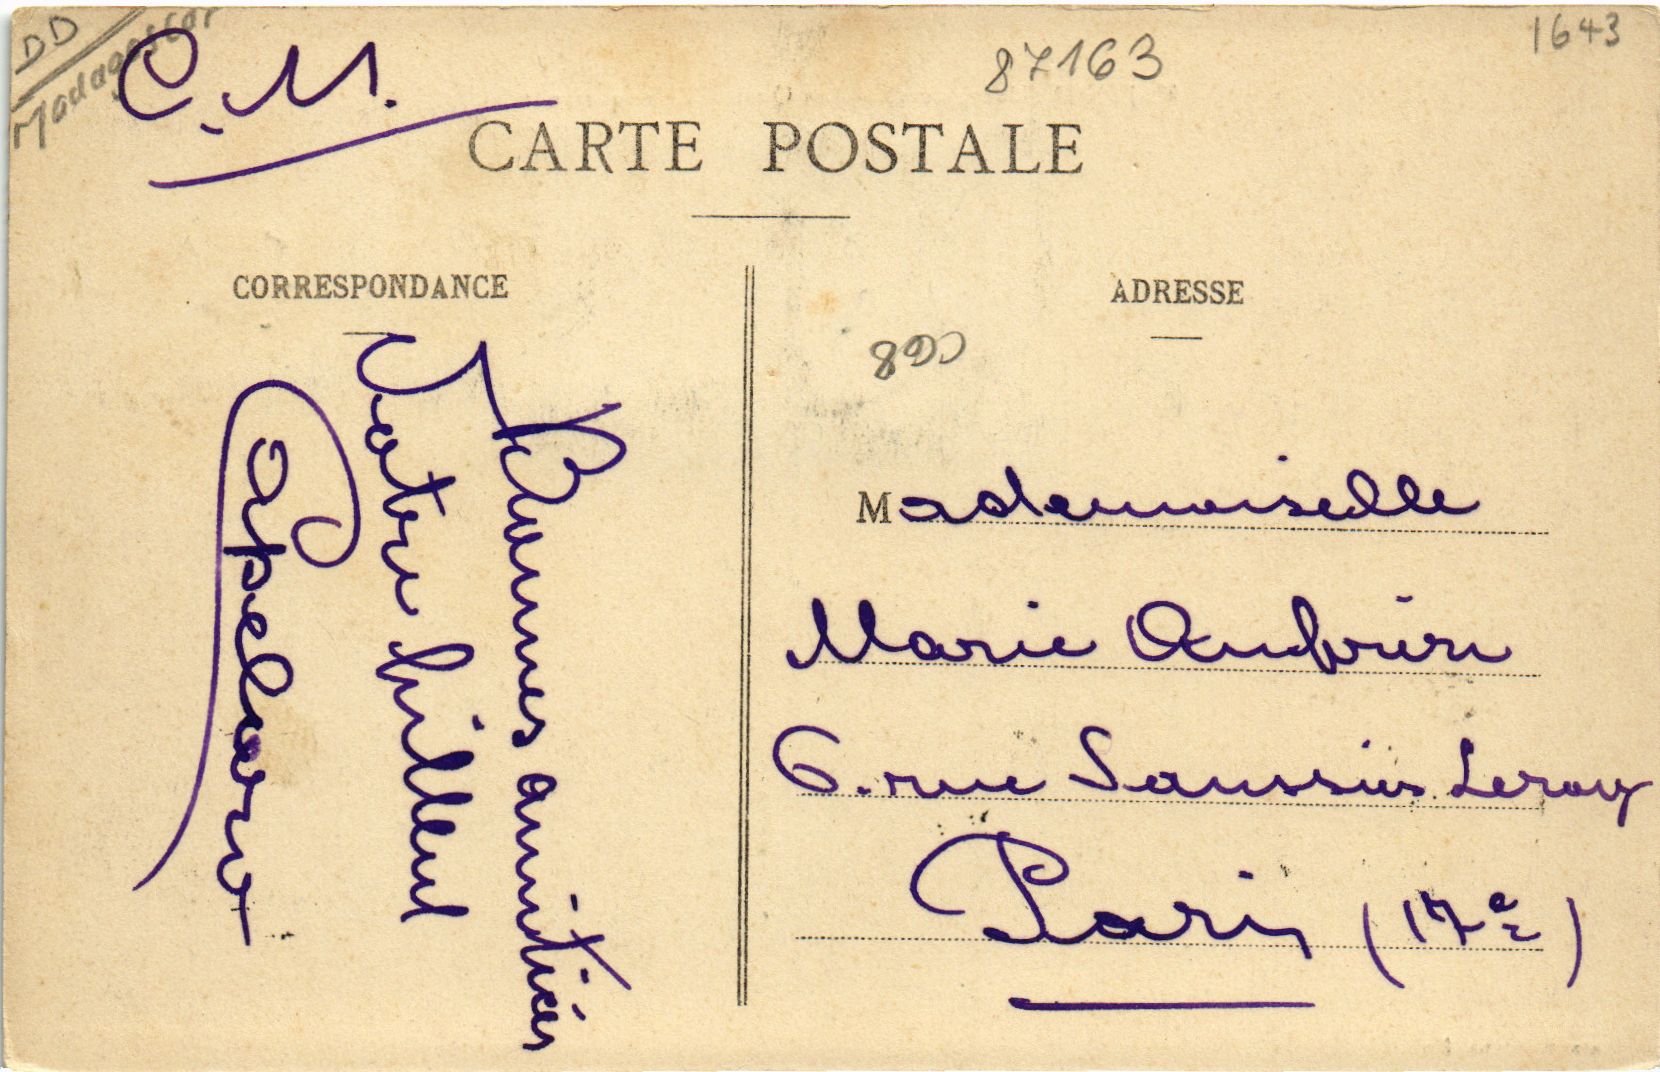 DD
Madagascar
C.M.
87163
1643
CARTE POSTALE
CORRESPONDANCE
ADRESSE
Bonnes amitiés
Votre filleul
Mademoiselle
Marie
6. rue Saussier Leroy
Paris (17e)